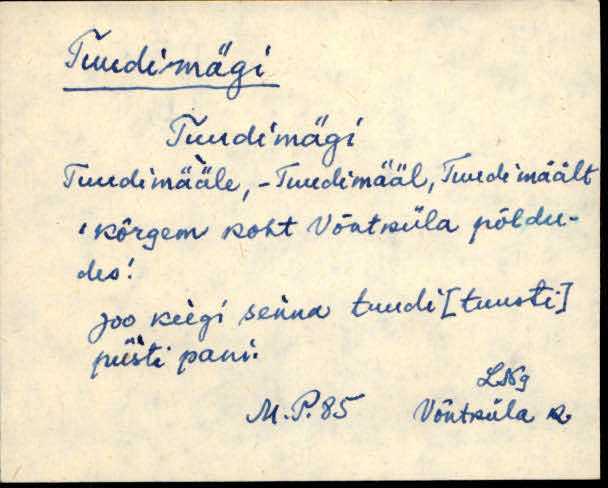 Tuudimägi
Tuudimägi
Tuudimä̀äle, -Tuudimääl, Tuudimäält
'kõrgem koht Võntküla põldu-
des!
joo keègi seìnna tuudi [tuusti]
püs̀ti pani.
LNg
M.P. 85 Võntküla k